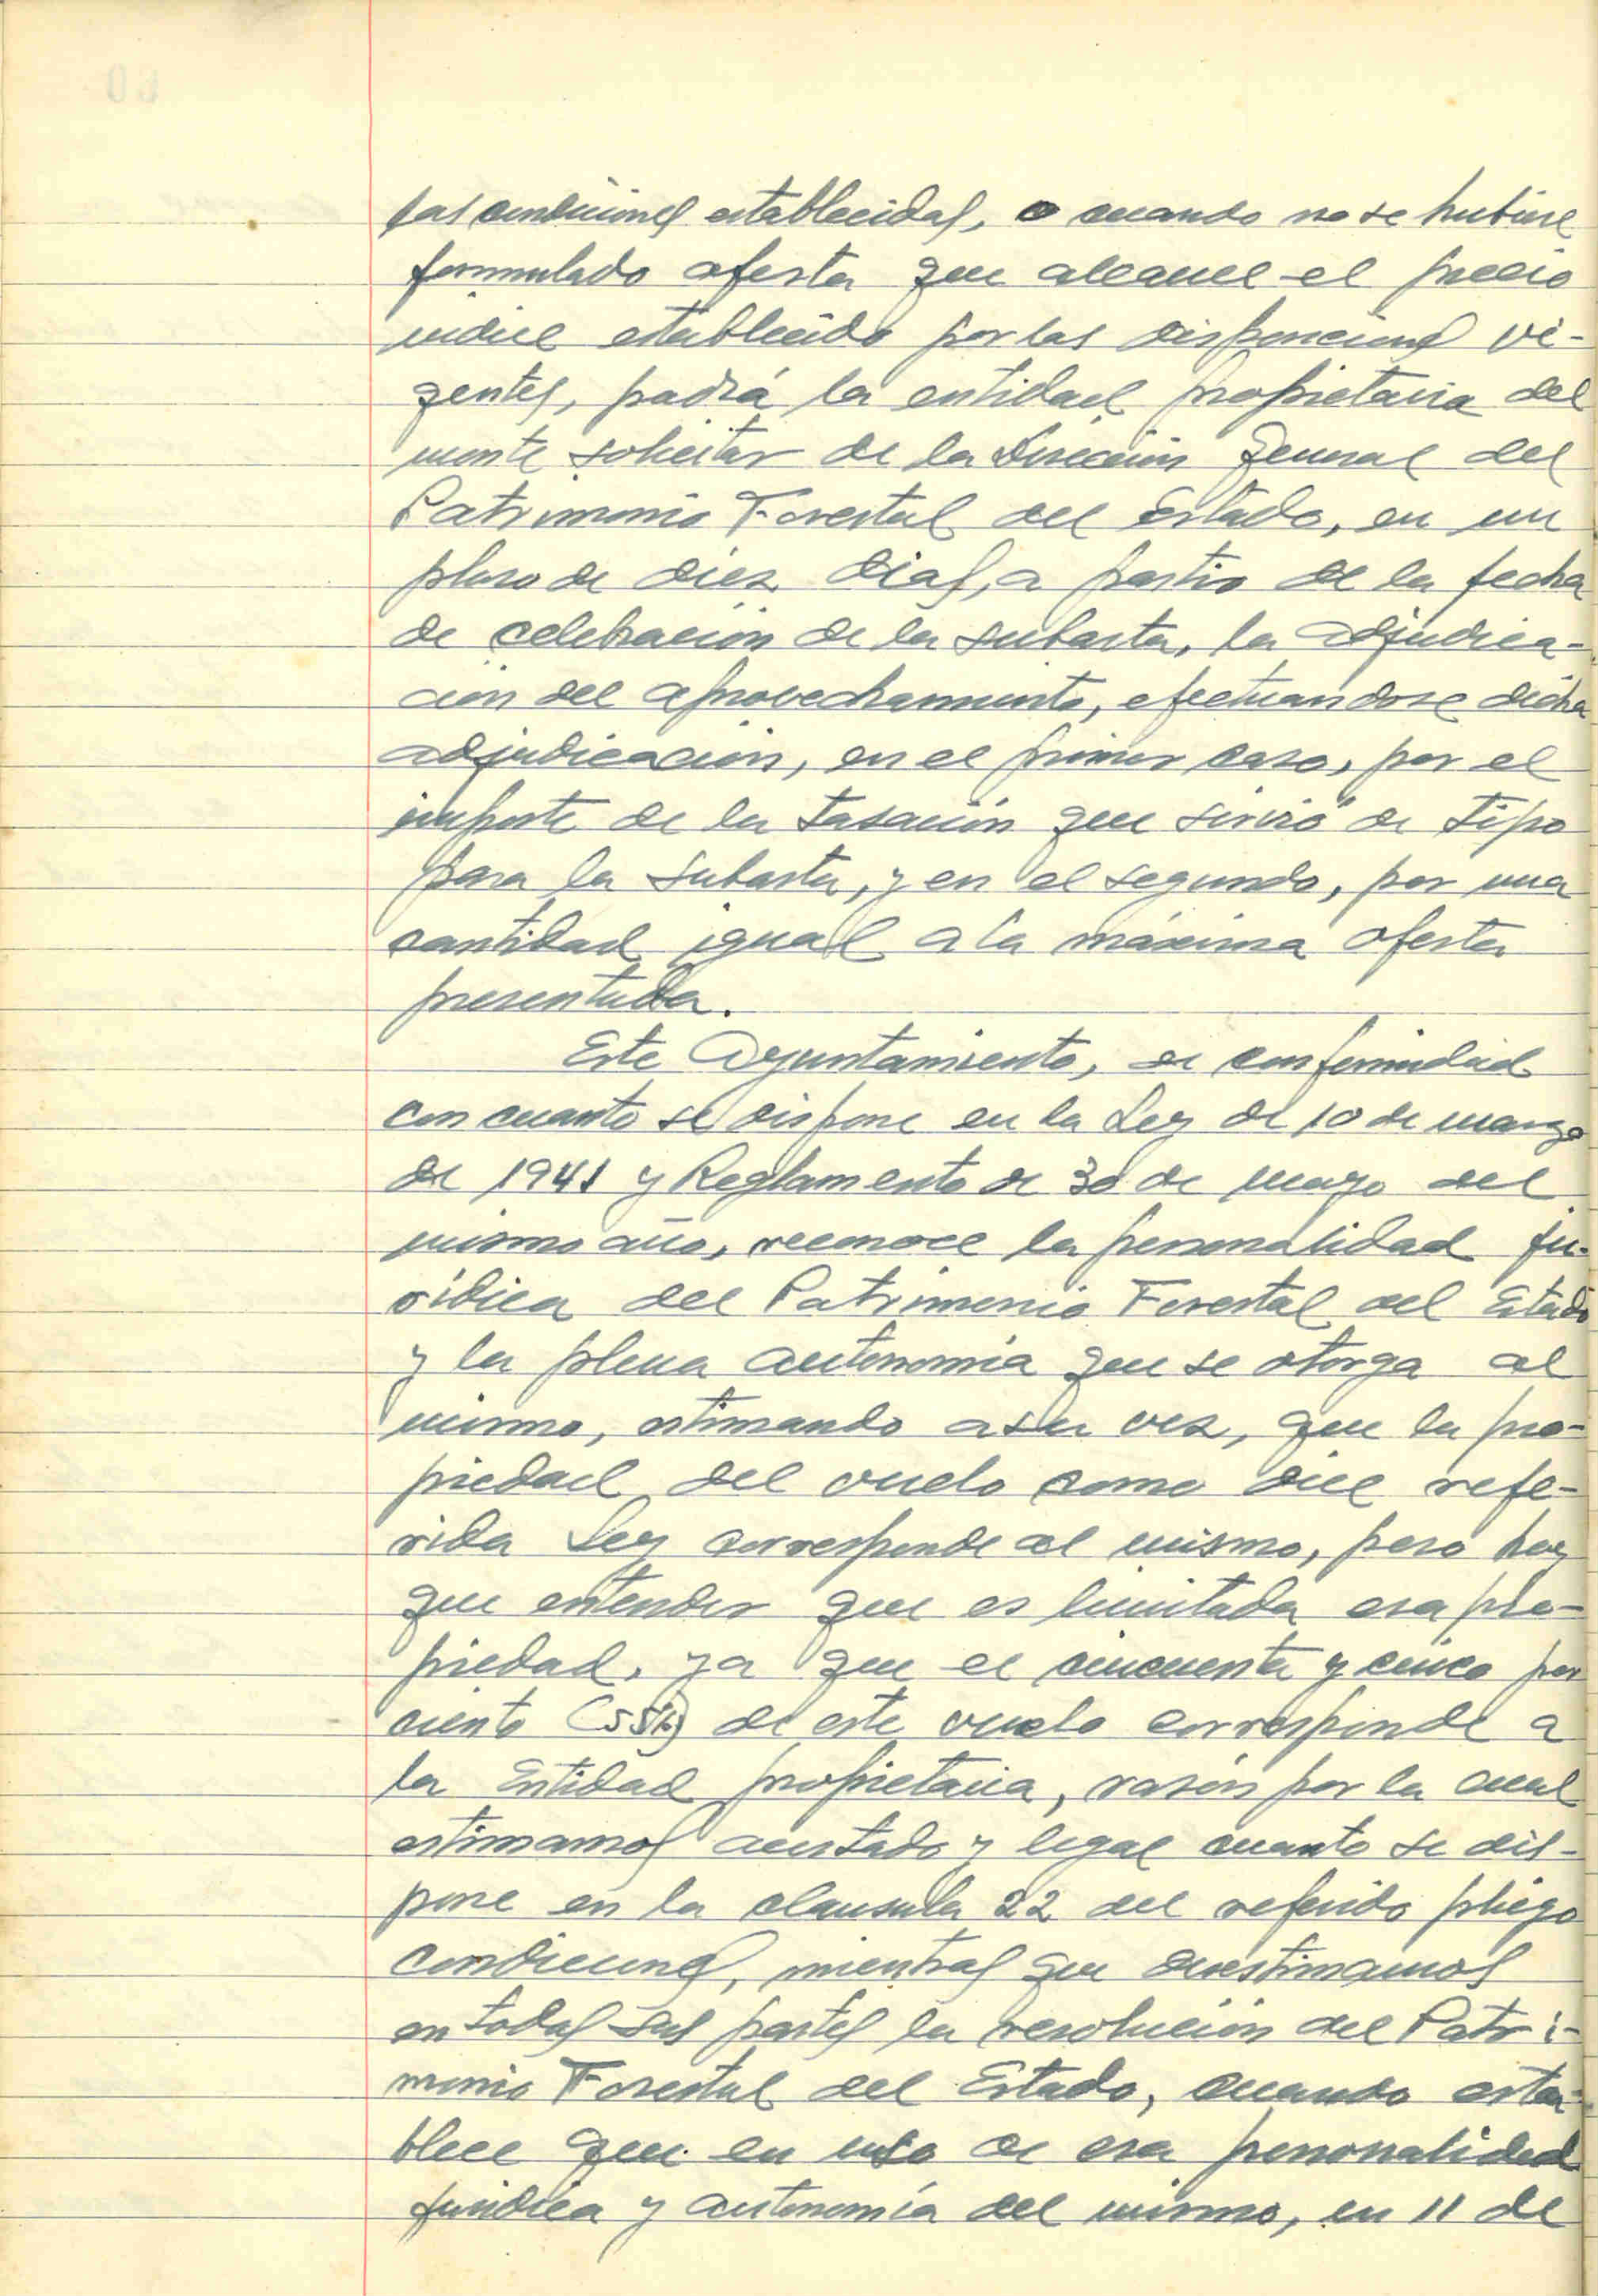 las condiciones establecidas, o cuando no se hubiese
formulado oferta que alcance el precio
indice establecido por las disposiciones vi-
gentes, podrá la entidad propietaria del
monte solicitar de la Dirección General del
Patrimonio Forestal del Estado, en un
plazo de diez dias, a partir de la fecha
de celebración de la subasta, la adjudica-
ción del aprovechamiento, efectuandose dicha
adjudicación, en el primer caso, por el
importe de la tasación que sirvió de tipo
para la subasta, y en el segundo, por una
cantidad igual a la máxima oferta
presentada.
Este Ayuntamiento, de conformidad
con cuanto se dispone en la Ley de 10 de marzo
de 1941 y Reglamento de 30 de mayo del
mismo año, reconoce la personalidad ju-
rídica del Patrimonio Forestal del Estado
y la plena autonomía que se otorga al
mismo, estimando a su vez, que la pro-
piedad del vuelo como dice refe-
rida Ley corresponde al mismo, pero hay
que entender que es limitada esa pro-
piedad, ya que el cincuenta y cinco por
ciento (55%) de este vuelo corresponde a
la Entidad propietaria, razón por la cual
estimamos acertado y legal cuanto se dis-
pone en la clausula 22 del referido pliego
condiciones, mientras que desestimamos
en todas sus partes la resolución del Patri-
monio Forestal del Estado, cuando esta-
blece que en uso de esa personalidad
juridica y autonomía del mismo, en 11 de